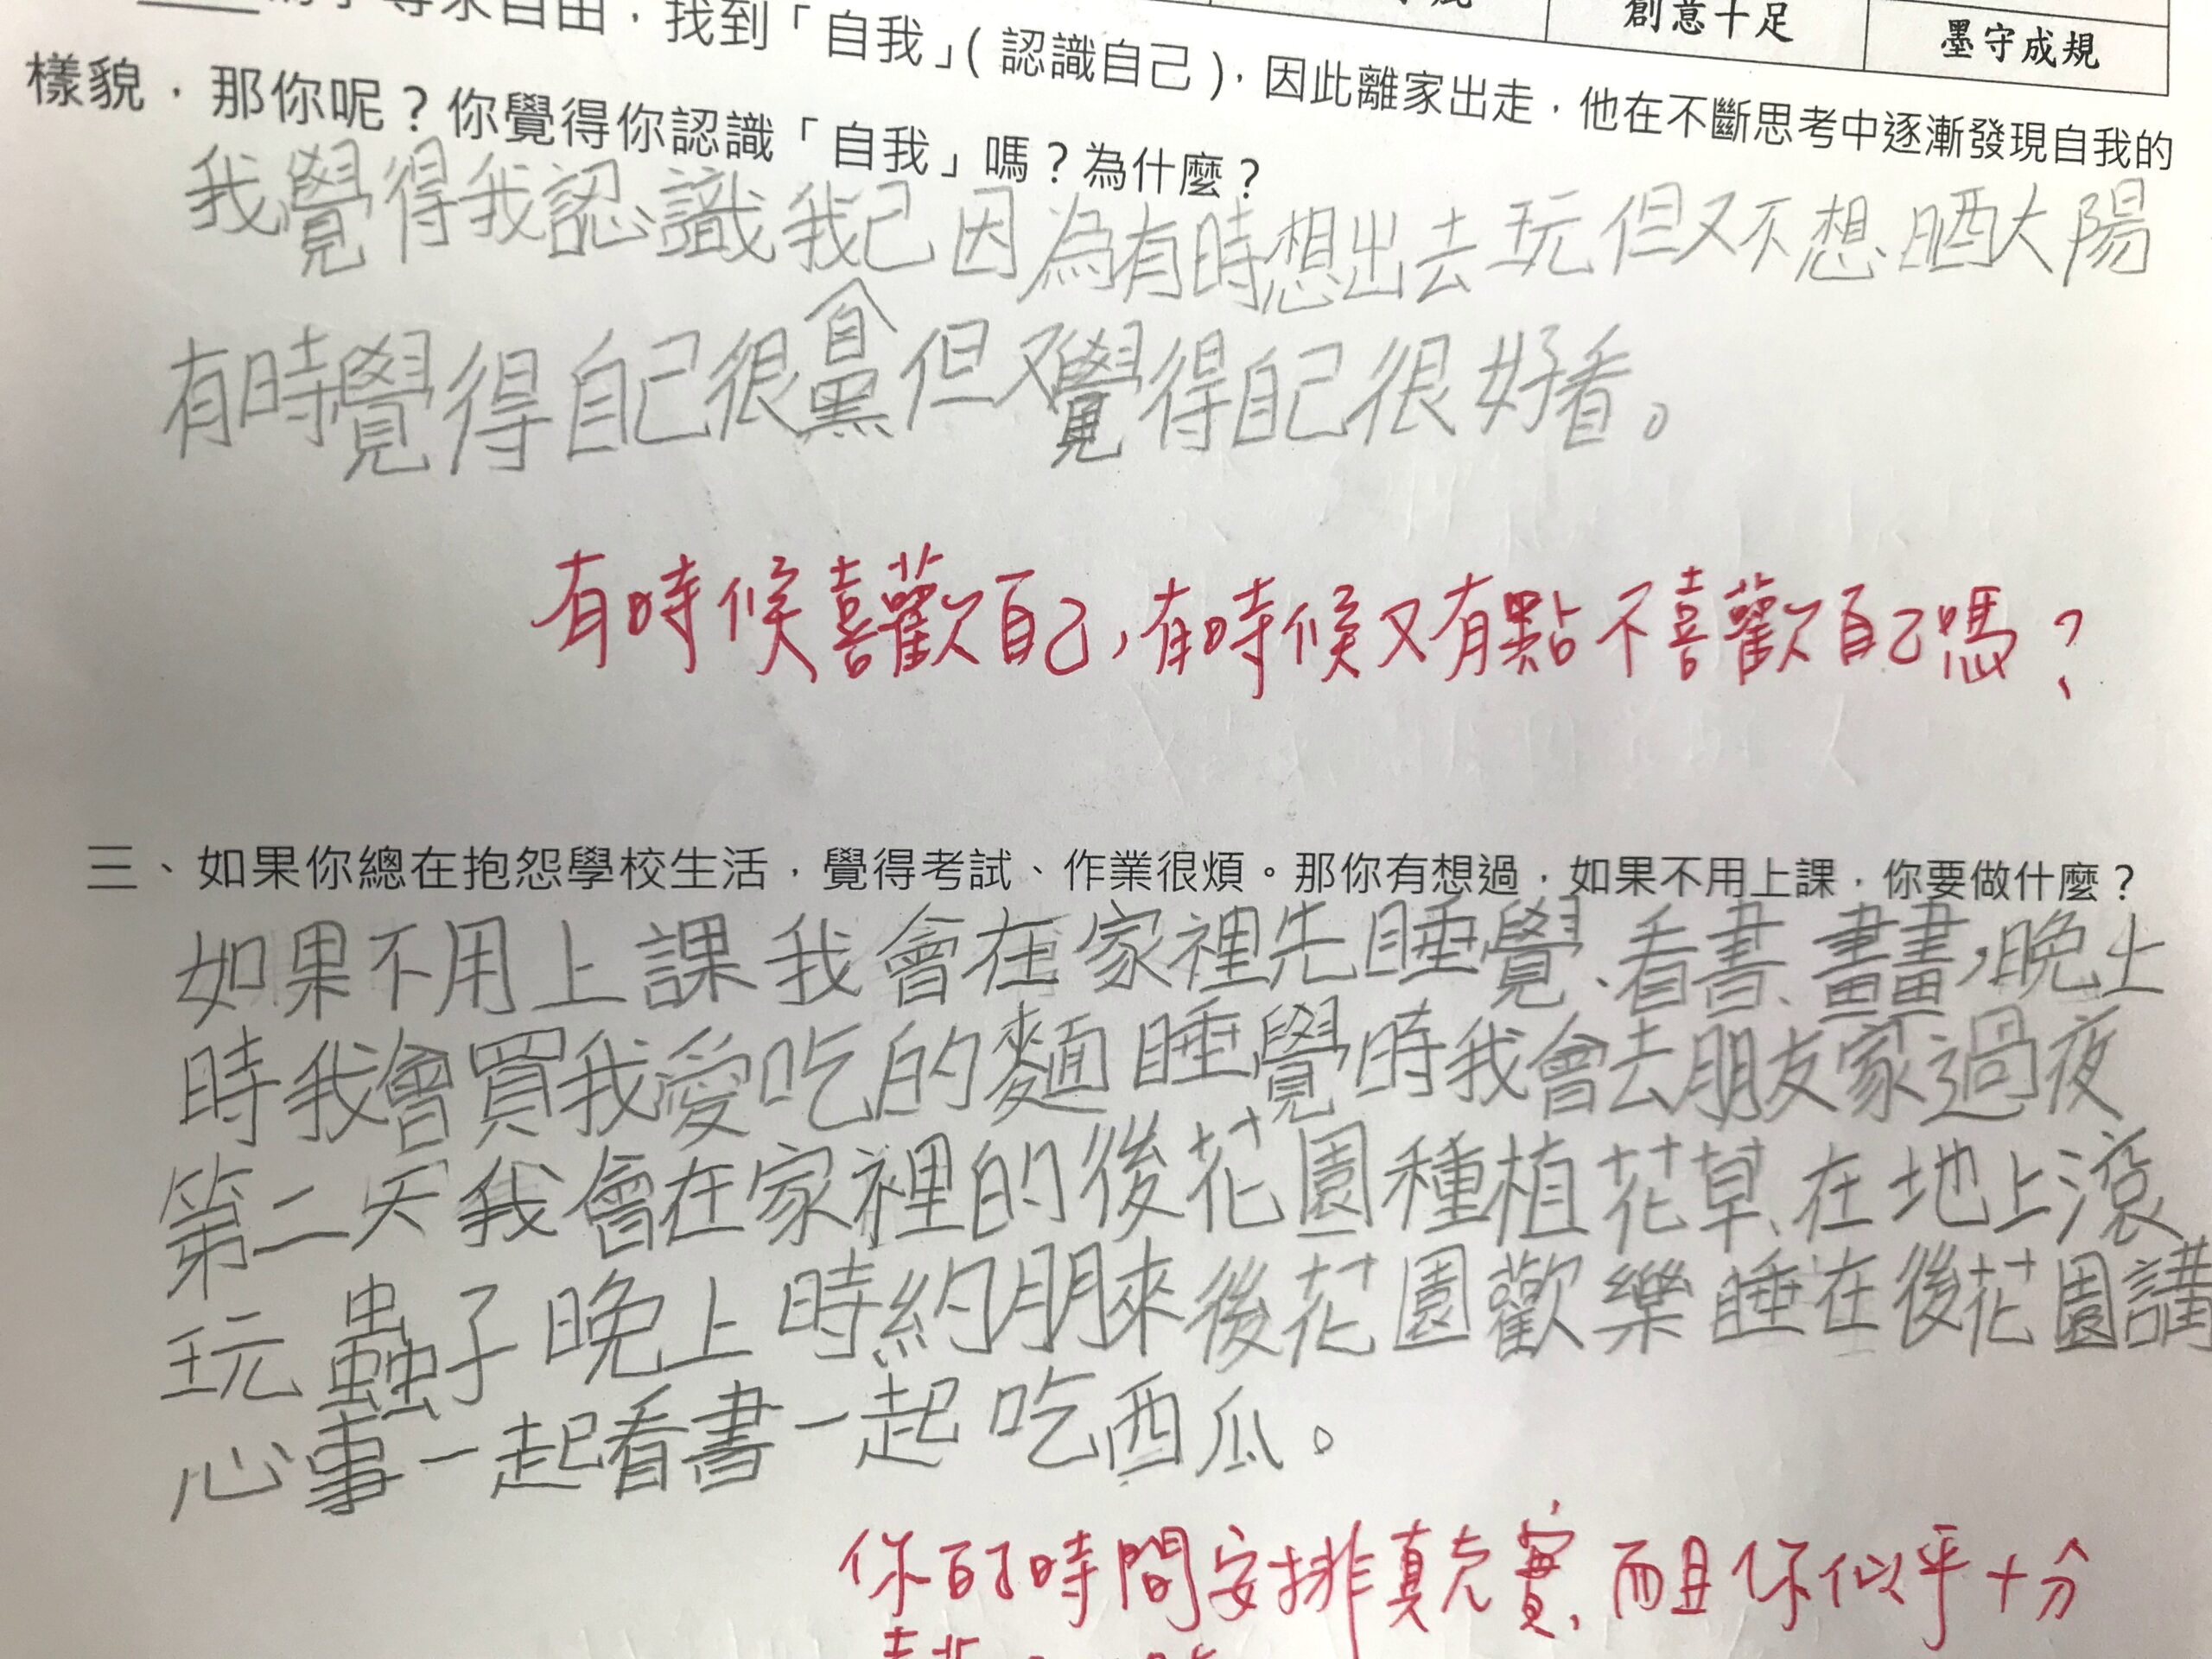 創意十足 墨守成規
尋求自由，找到「自我」（認識自己），因此離家出走，他在不斷思考中逐漸發現自我的
樣貌，那你呢？你覺得你認識「自我」嗎？為什麼？
我覺得我認識我己因為有時想出去玩但又不想晒大陽
有時覺得自己很但又覺得自己很好看。
有時候喜歡自己，有時候又有點不喜歡自己嗎？
三、如果你總在抱怨學校生活，覺得考試、作業很煩。那你有想過，如果不用上課，你要做什麼？
如果不用上課我會在家裡先睡覺、看書、畫畫，晚上
時我會買我愛吃的麵睡覺時我會去朋友家過夜
第二天我會在家裡的後花園種植花草、在地上滾
玩蟲子晚上時約朋來後花園歡樂睡在後花園講
心事一起看書一起吃西瓜。
你的時間安排真充實，而且你似乎十分